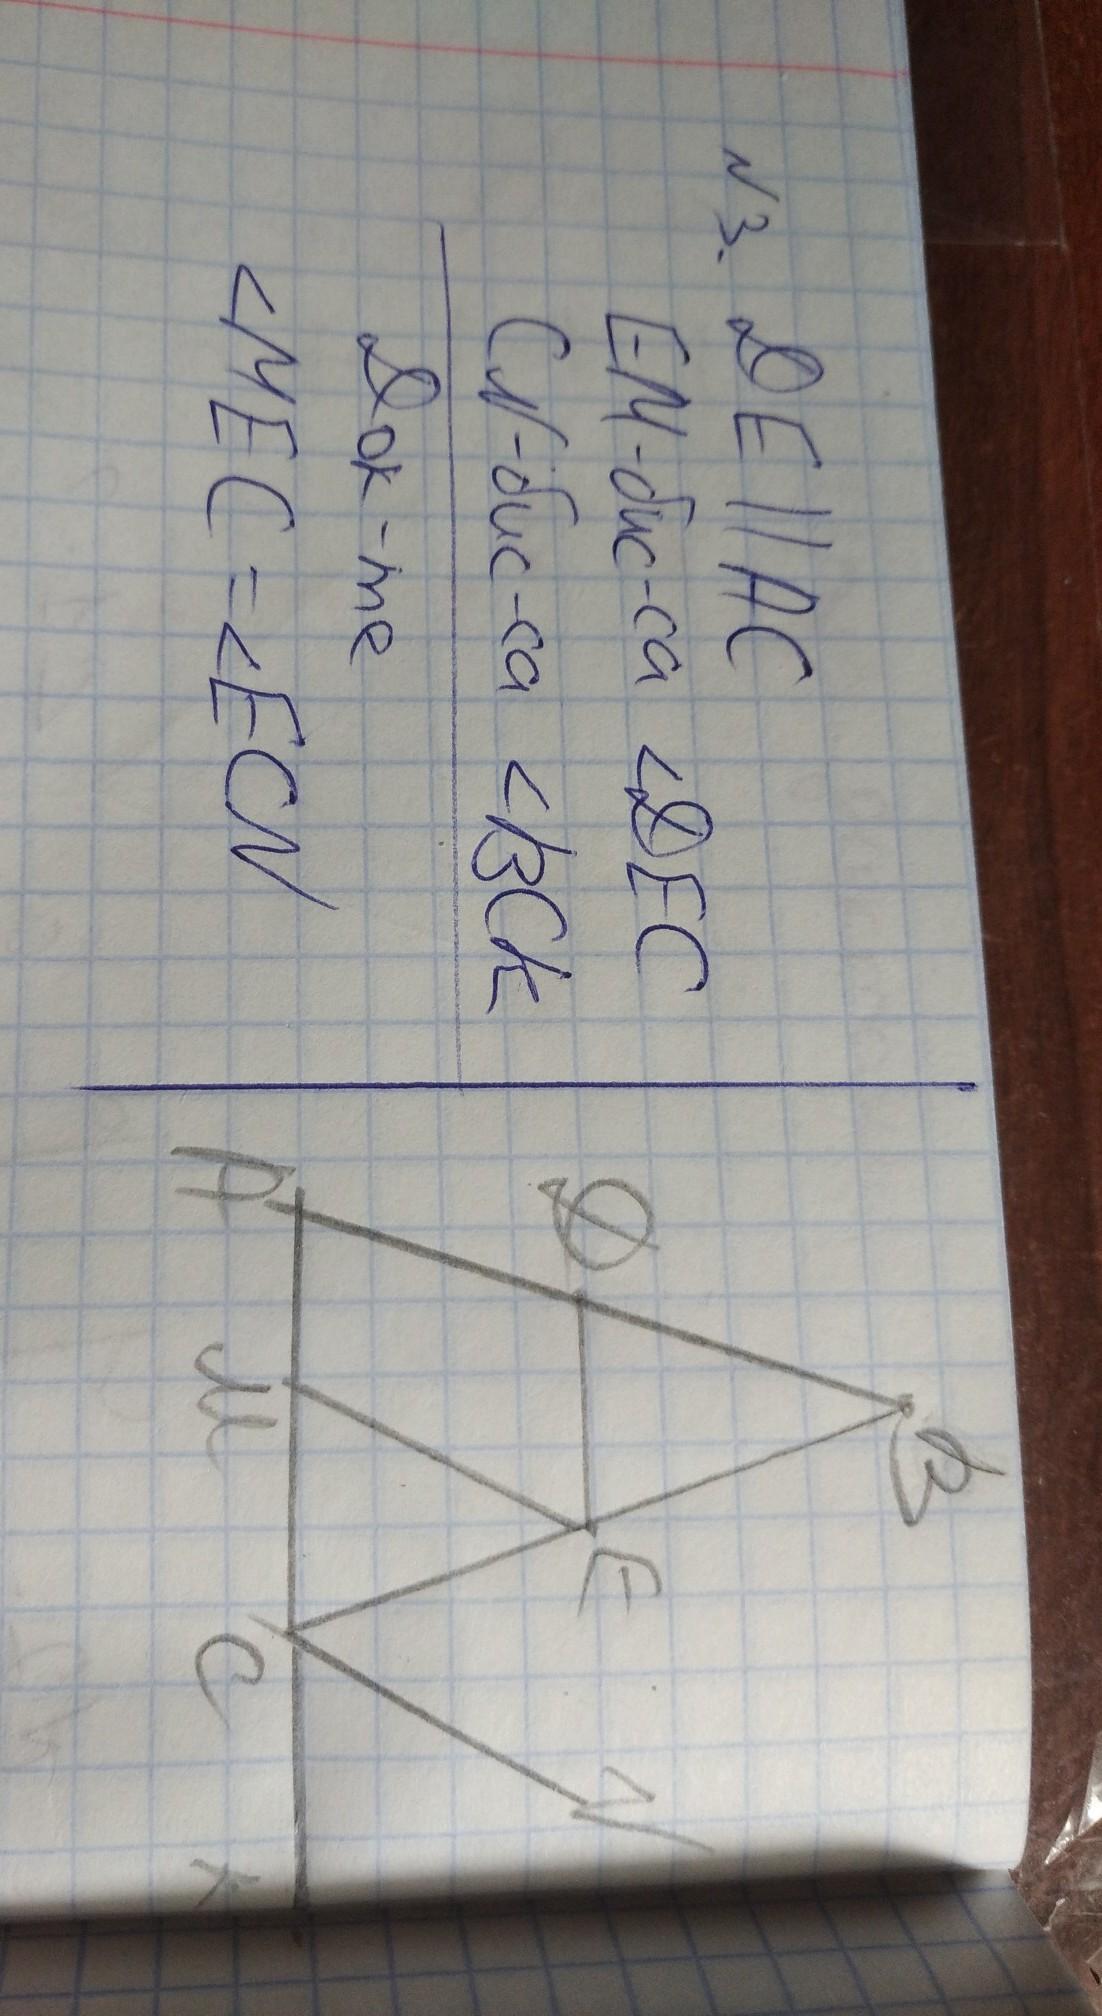 N3. DE || AC
EM-бис-са <DEC
CN-бис-са <BCK
Док-те
<MEC = <ECN
B
D E N
A M C K